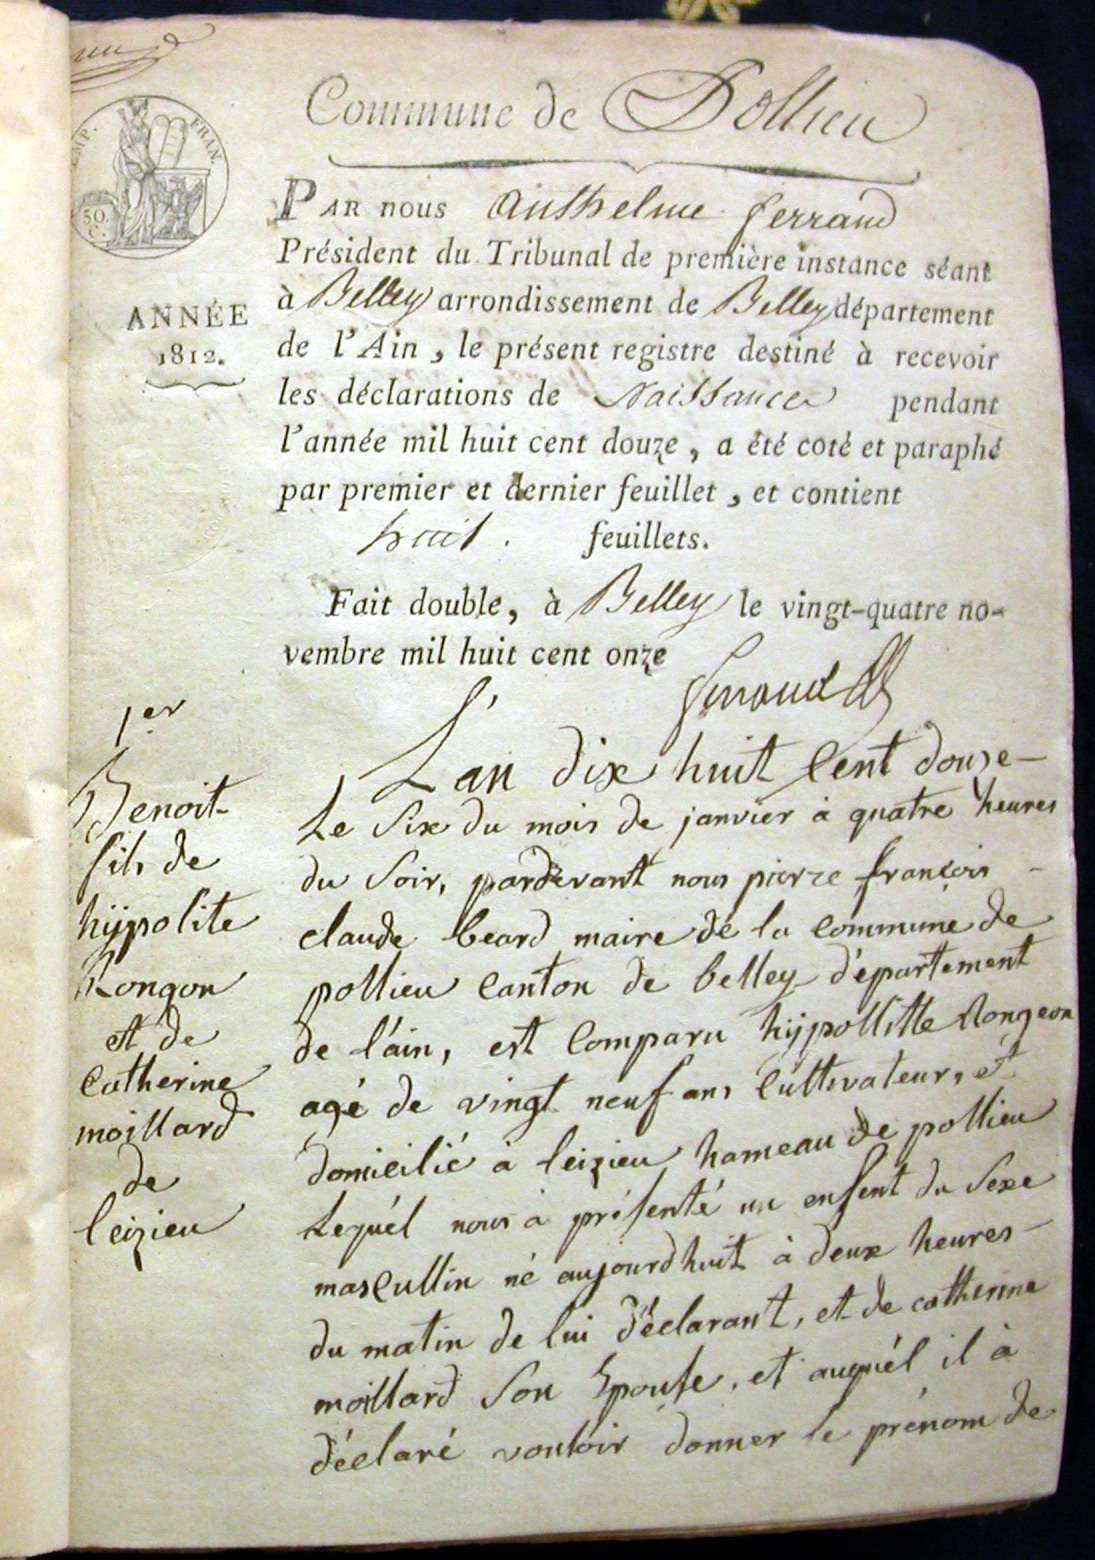 Commune de Pollieu
EMP. FRAN.
50.
C.
PAR nous Anthelme ferrand
Président du Tribunal de première instance séant
à Belley arrondissement de Belley département
de l'Ain, le présent registre destiné à recevoir
les déclarations de Naissances pendant
l'année mil huit cent douze, a été coté et paraphé
par premier et dernier feuillet, et contient
huit. feuillets.
Fait double, à Belley le vingt-quatre no-
vembre mil huit cent onze
ANNÉE
1812.
1er
Benoit
fils de
hypolite
Rongon
et de
Catherine
moillard
de
leizieu
L'an dix huit Cent douze
Le Six du mois de janvier à quatre heures
du Soir, pardevant nous pierre françois
claude beard maire de la Commune de
pollieu Canton de belley département
de l'ain, est Comparu hypollitte Rongeon
agé de vingt neuf ans Cultivateur, et
domicilié à leizieu hameau de pollieu
Lequél nous à présenté un enfent du Sexe
masCullin né aujourdhuit à deux heures
du matin de lui déclarant, et de catherine
moillard Son Epouse, et auquél il à
déclaré vouloir donner le prénom de